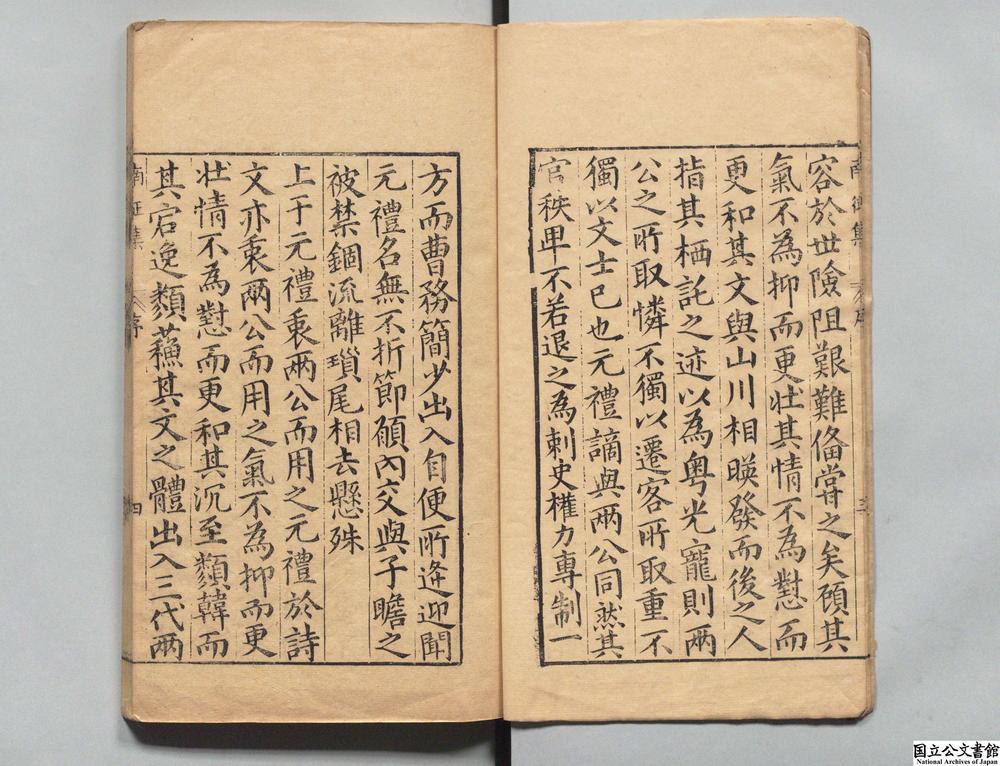 容於世險阻艱難備甞之矣頋其
氣不為抑而更壮其情不為懟而
更和其文與山川相暎發而後之人
指其栖託之迹以為粤光寵則兩
公之所取憐不獨以遷客所取重不
獨以文士已也元禮謫與兩公同然其
官秩卑不若退之為刺史權力專制一
方而曹務簡少出入自便所逄迎聞
元禮名無不折節願内交與子瞻之
被禁錮流離瑣尾相去懸殊
上于元禮秉兩公而用之元禮於詩
文亦秉兩公而用之氣不為抑而更
壮情不為懟而更和其沉至纇韓而
其宕逸纇蘓其文之體出入三代兩
序
三
序
四
国立公文書館
National Archives of Japan